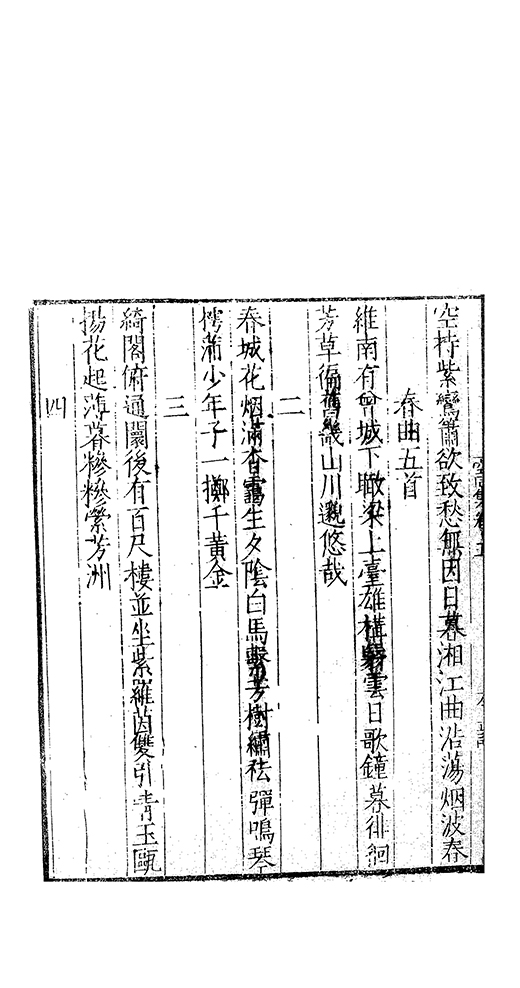 空持紫鸞簫欲致愁無因日暮湘江曲浩蕩烟波春
春曲五首
維南有曾城下瞰梁上臺雄構雲日歌鐘暮徘徊
芳草徧舊畿山川邈悠哉
二
春城花烟滿杳靄生夕陰白馬繫芳樹繡袪彈鳴琴
樗蒲少年子一擲千黃金
三
綺閣俯通闤後有百尺樓並坐紫羅茵雙引青玉甌
揚花起薄暮糝糝縈芳洲
四